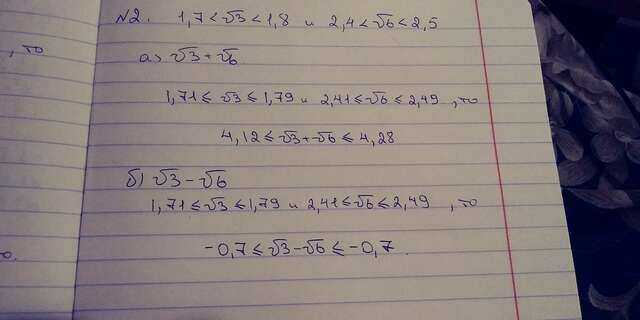 №2. 1,7 < √3 < 1,8 и 2,4 < √6 < 2,5
, то
а) √3 + √6
1,71 ≤ √3 ≤ 1,79 и 2,41 ≤ √6 ≤ 2,49 , то
4,12 ≤ √3 + √6 ≤ 4,28
б) √3 - √6
1,71 ≤ √3 ≤ 1,79 и 2,41 ≤ √6 ≤ 2,49 , то
-0,7 ≤ √3 - √6 ≤ -0,7.